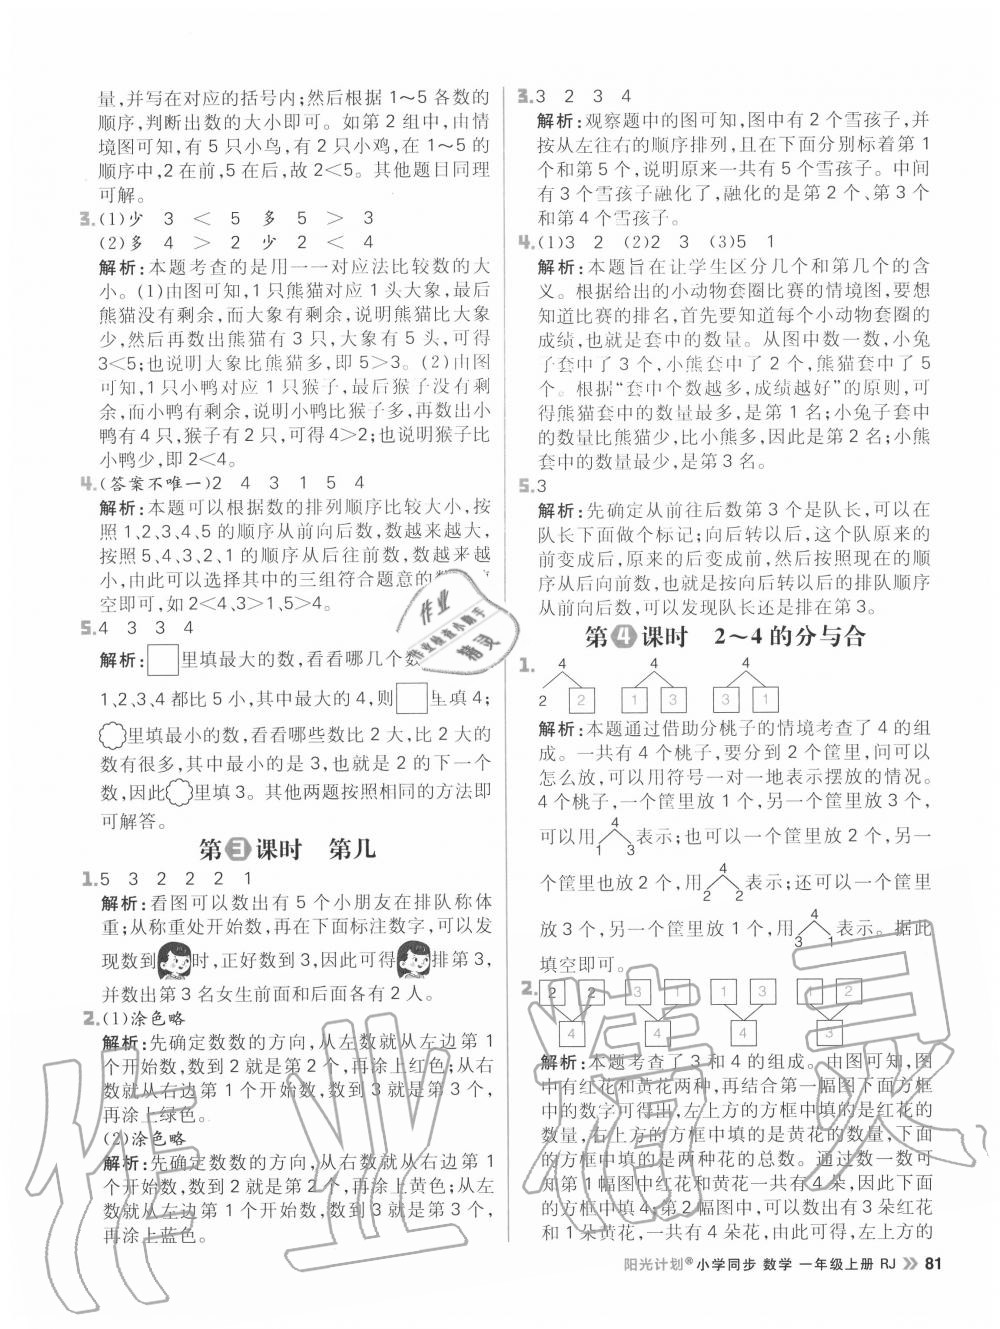 量,并写在对应的括号内;然后根据 1～5 各数的
顺序,判断出数的大小即可。如第 2 组中,由情
境图可知,有 5 只小鸟,有 2 只小鸡,在 1～5 的
顺序中,2 在前,5 在后,故 2<5。其他题目同理
可解。
3.(1)少 3 < 5 多 5 > 3
(2)多 4 > 2 少 2 < 4
解析:本题考查的是用一一对应法比较数的大
小。(1)由图可知,1 只熊猫对应 1 头大象,最后
熊猫没有剩余,而大象有剩余,说明熊猫比大象
少,然后再数出熊猫有 3 只,大象有 5 头,可得
3<5;也说明大象比熊猫多,即 5>3。(2)由图
可知,1 只小鸭对应 1 只猴子,最后猴子没有剩
余,而小鸭有剩余,说明小鸭比猴子多,再数出小
鸭有 4 只,猴子有 2 只,可得 4>2;也说明猴子比
小鸭少,即 2<4。
4.(答案不唯一)2 4 3 1 5 4
解析:本题可以根据数的排列顺序比较大小,按
照 1、2、3、4、5 的顺序从前向后数,数越来越大,
按照 5、4、3、2、1 的顺序从后往前数,数越来越
小,由此可以选择其中的三组符合题意的数
空即可,如 2<4、3>1、5>4。
5.4 3 3 4
解析:□里填最大的数,看看哪几个数
1、2、3、4 都比 5 小,其中最大的 4,则□里填 4;
里填最小的数,看看哪些数比 2 大,比 2 大的
数有很多,其中最小的是 3,也就是 2 的下一个
数,因此里填 3。其他两题按照相同的方法即
可解答。
第3课时 第几
1.5 3 2 2 2 1
解析:看图可以数出有 5 个小朋友在排队称体
重;从称重处开始数,再在下面标注数字,可以发
现数到时,正好数到 3,因此可得排第 3,
并数出第 3 名女生前面和后面各有 2 人。
2.(1)涂色略
解析:先确定数数的方向,从左数就从左边第 1
个开始数,数到 2 就是第 2 个,再涂上红色;从右
数就从右边第 1 个开始数,数到 3 就是第 3 个,
再涂上绿色。
(2)涂色略
解析:先确定数数的方向,从右数就从右边第 1
个开始数,数到 2 就是第 2 个,再涂上黄色;从左
数就从左边第 1 个开始数,数到 3 就是第 3 个,
再涂上蓝色。
3.3 2 3 4
解析:观察题中的图可知,图中有 2 个雪孩子,并
按从左往右的顺序排列,且在下面分别标着第 1
个和第 5 个,说明原来一共有 5 个雪孩子。中间
有 3 个雪孩子融化了,融化的是第 2 个、第 3 个
和第 4 个雪孩子。
4.(1)3 2 (2)2 3 (3)5 1
解析:本题旨在让学生区分几个和第几个的含
义。根据给出的小动物套圈比赛的情境图,要想
知道比赛的排名,首先要知道每个小动物套圈的
成绩,也就是套中的数量。从图中数一数,小兔
子套中了 3 个,小熊套中了 2 个,熊猫套中了 5
个。根据“套中个数越多,成绩越好”的原则,可
得熊猫套中的数量最多,是第 1 名;小兔子套中
的数量比熊猫少,比小熊多,因此是第 2 名;小熊
套中的数量最少,是第 3 名。
5.3
解析:先确定从前往后数第 3 个是队长,可以在
队长下面做个标记;向后转以后,这个队原来的
前变成后,原来的后变成前,然后按照现在的顺
序从后向前数,也就是按向后转以后的排队顺序
从前向后数,可以发现队长还是排在第 3。
第4课时 2～4 的分与合
1. 4 4 4
2 2 1 3 3 1
解析:本题通过借助分桃子的情境考查了 4 的组
成。一共有 4 个桃子,要分到 2 个筐里,问可以
怎么放,可以用符号一对一地表示摆放的情况。
4 个桃子,一个筐里放 1 个,另一个筐里放 3 个,
4
可以用表示;也可以一个筐里放 2 个,另一
1 3
4
个筐里也放 2 个,用表示;还可以一个筐里
2 2
4
放 3 个,另一个筐里放 1 个,用表示。据此
3 1
填空即可。
2. 2 2 3 1 1 3 1 2
4 4 4 3
解析:本题考查了 3 和 4 的组成。由图可知,图
中有红花和黄花两种,再结合第一幅图下面方框
中的数字可得出,左上方的方框中填的是红花的
数量,右上方的方框中填的是黄花的数量,下面
的方框中填的是两种花的总数。通过数一数可
知第 1 幅图中红花和黄花一共有 4 朵,因此下面
的方框中填 4;第 2 幅图中,可以数出有 3 朵红花
和 1 朵黄花,一共有 4 朵花,由此可得,左上方的
阳光计划®小学同步 数学 一年级上册 RJ 81
作业
作业检查小助手
精灵
作业精灵